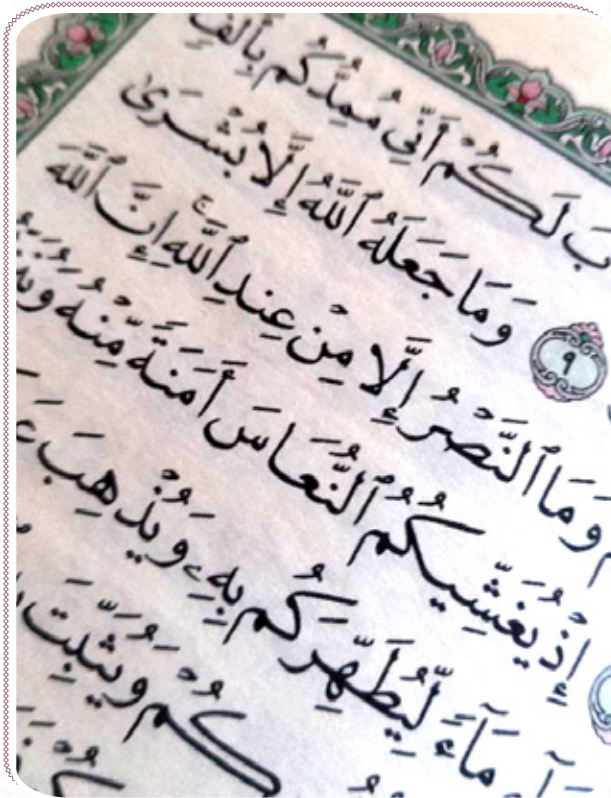 لَكُمْ أَنِّي مُمِدُّكُم بِأَلْفٍ
٩ وَمَا جَعَلَهُ ٱللَّهُ إِلَّا بُشْرَىٰ
وَمَا ٱلنَّصْرُ إِلَّا مِنْ عِندِ ٱللَّهِ ۚ إِنَّ ٱللَّهَ
إِذْ يُغَشِّيكُمُ ٱلنُّعَاسَ أَمَنَةً مِّنْهُ
مَآءً لِّيُطَهِّرَكُم بِهِۦ وَيُذْهِبَ
كُمْ وَيُثَبِّتَ